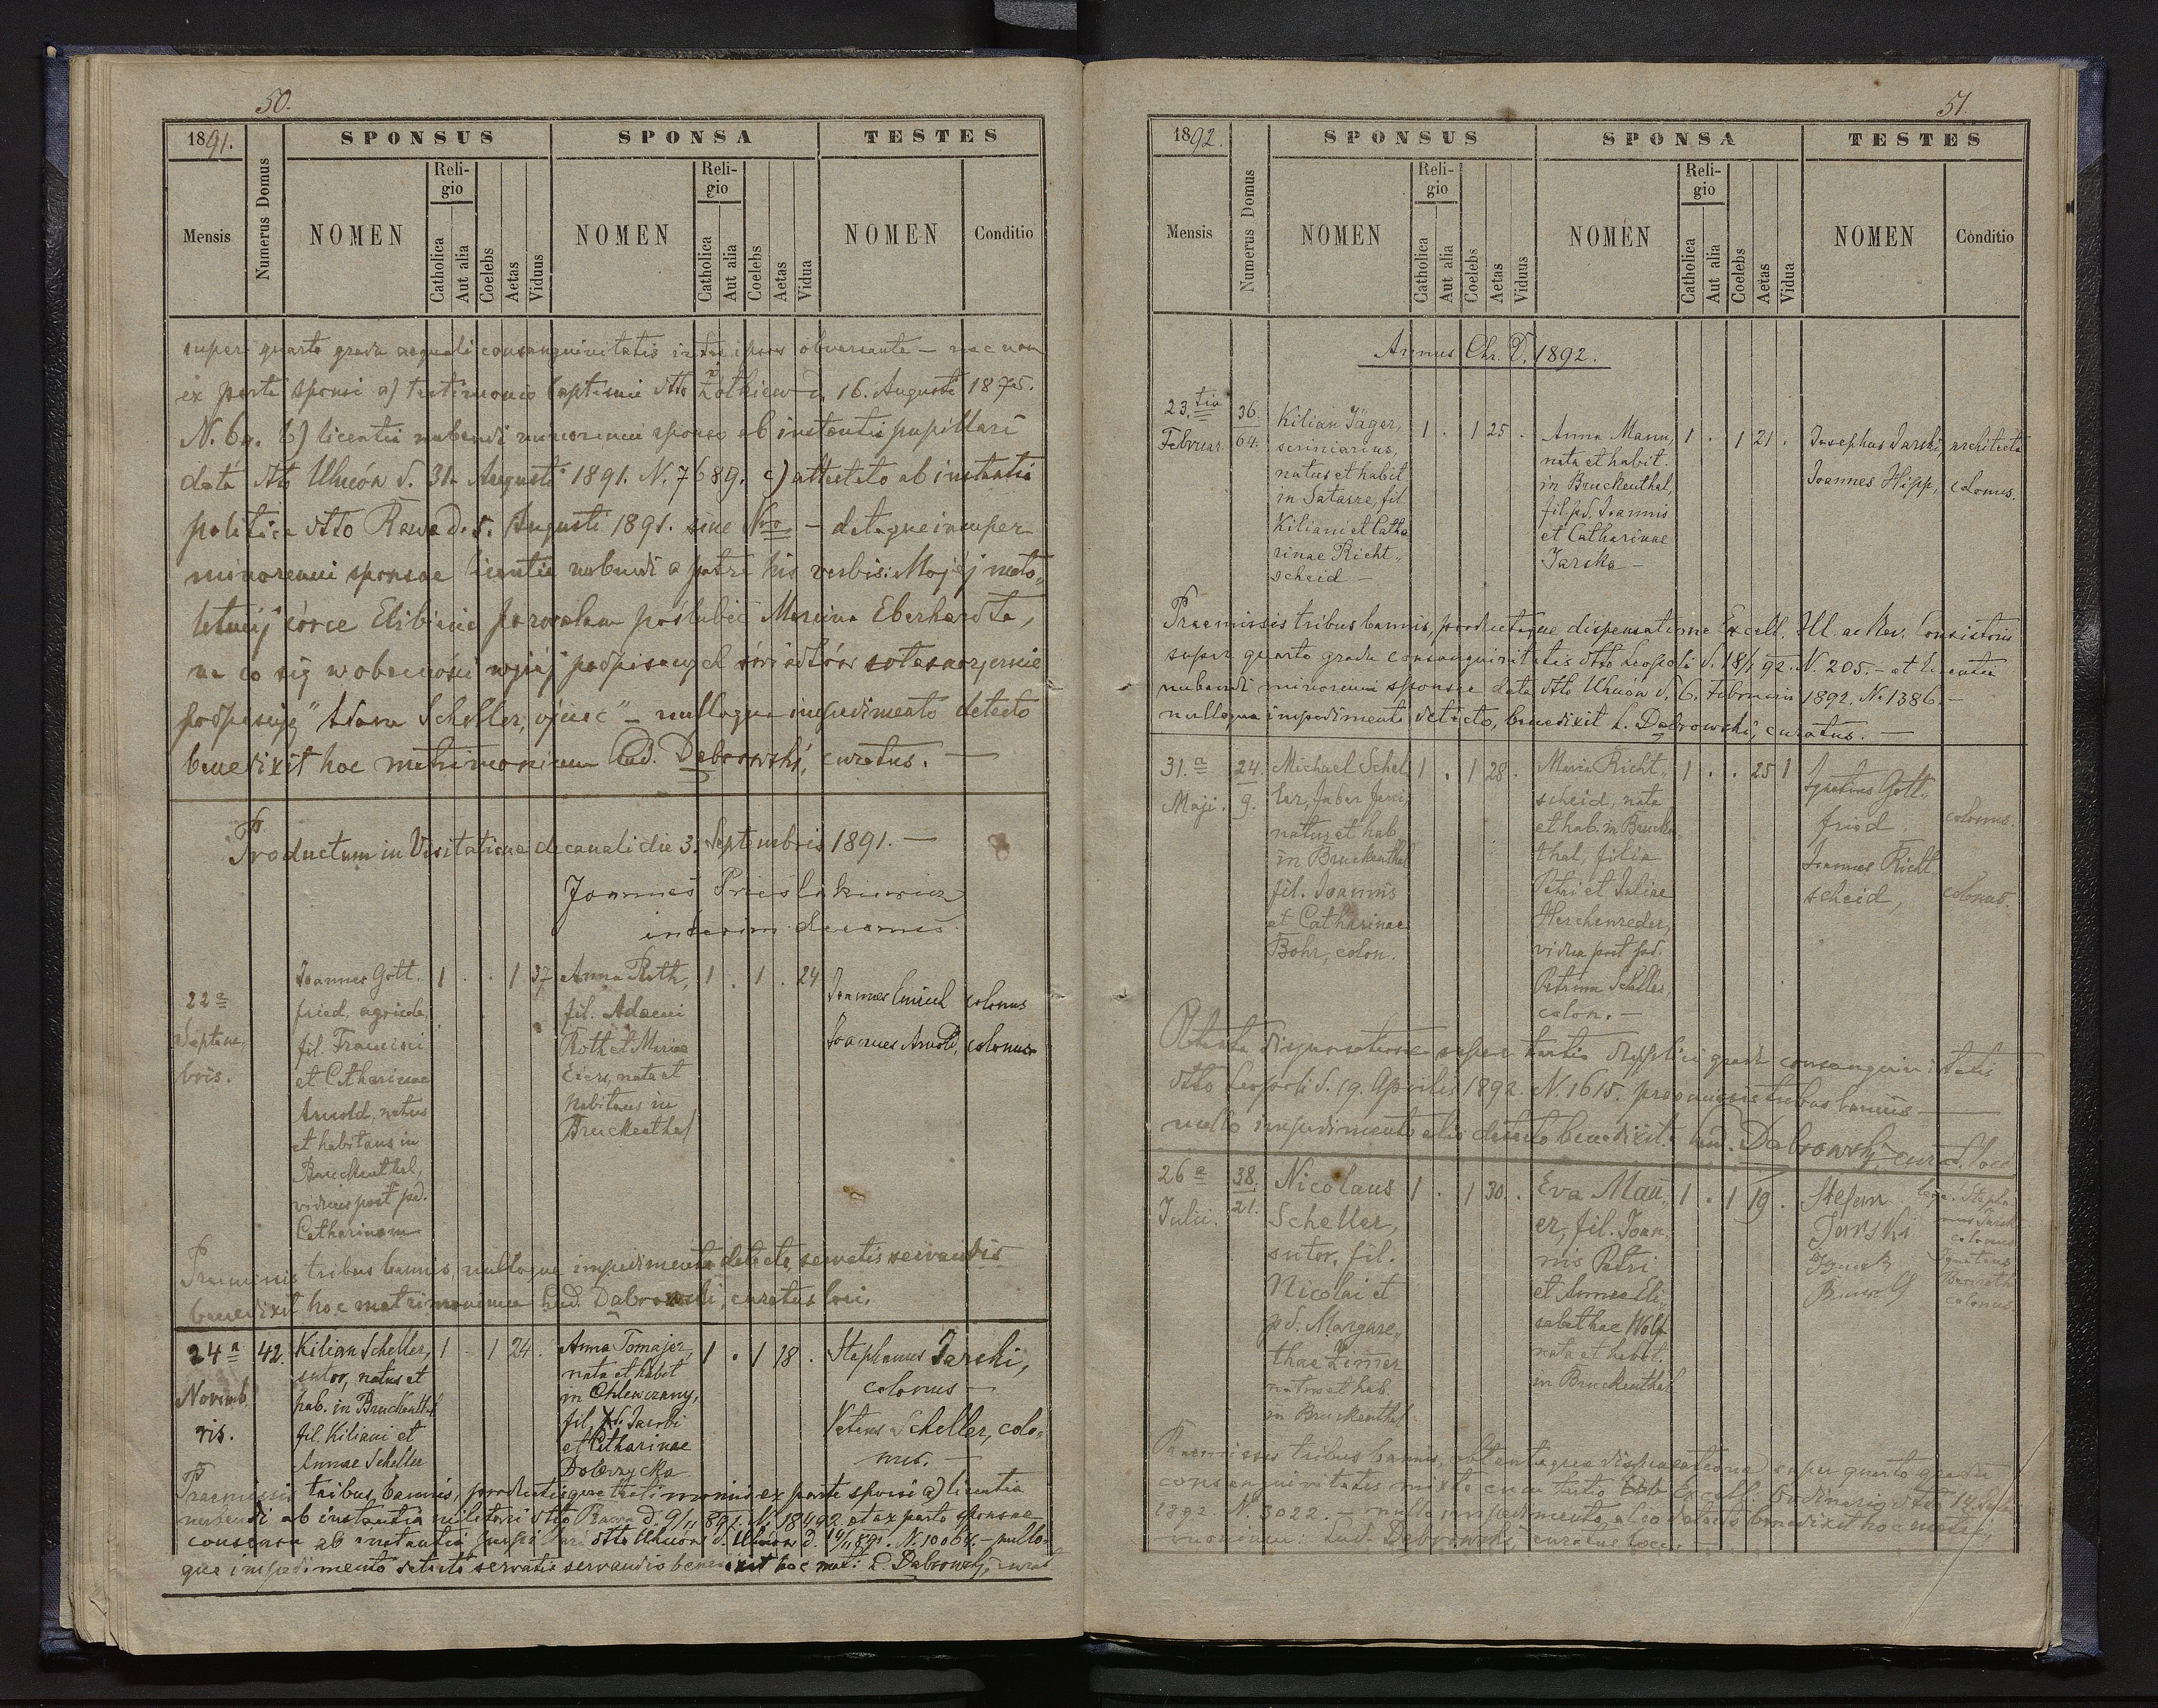 50.
1891.
Mensis
Numerus Domus
SPONSUS
NOMEN
Reli-
gio
Catholica
Aut alia
Coelebs
Aetas
Viduus
SPONSA
NOMEN
Reli-
gio
Catholica
Aut alia
Coelebs
Aetas
Vidua
TESTES
NOMEN
Conditio
super quarto gradu aequali consanguinitatis inter ipsos obversante – nec non
ex parte sponsi a) testimonio baptismi dtto Żółkiew d. 16. Augusti 1875.
N. 69. b) licentia nubendi minorenni sponso ab instantia pupillari
data dtto Uhnów d. 31. Augusti 1891. N. 7689. c) attestato ab instantia
politica dtto Rawa d. 5. Augusti 1891. sine Nro – dataque insuper
minorenni sponsae licentia nubendi a patre his verbis: Mojej mało„
letniej córce Elżbiecie pozwalam poślubić Marcina Eberhardta,
na co się w obecności niżej podpisanych świadków własnoręcznie
podpisuję" Adam Scheller, ojciec" – nulloque impedimento detecto
benedixit hoc matrimonium Lud. Dąbrowski, curatus. —
Productum in Visitatione decanali die 3. Septembris 1891. —
Joannes
interim decanus
22a
Septem„
bris.
Joannes Gott„
fried, agricola,
fil. Francisci
et Catharinae
Arnold, natus
et habitans in
Bruckenthal,
viduus post pd.
Catharinam
1 . . 1 37
Anna Roth,
fil. Adami
Roth et Mariae
nata et
habitans in
Bruckenthal
1 . 1 . 24
Joannes Emich colonus
Joannes Arnold, colonus
Praemissis tribus bannis, nulloque impedimento detecto, servatis servandis
benedixit hoc matrimonium Lud. Dąbrowski, curatus loci.
24a
Novemb
ris.
42.
Kilian Scheller,
sutor, natus et
hab. in Bruckenthal
fil. Kiliani et
Annae Scheller
1 . 1 24 .
Anna Tomajer,
nata et habit
in Chlewczany,
fil. pd. Jacobi
et Catharinae
Dobrzycka
1 . 1 18 .
Stephanus Jarski,
colonus –
Petrus Scheller, colo„
nus. —
Praemissis tribus bannis, productisque testimoniis ex parte sponsi a) licentia
nubendi ab instantia militari dtto Rawa d. 9/11 891. N. 18492 et ex parte sponsae
consensu ab instantia dtto Uhnów d. Uhnów d. 14/11 891. N. 10064. – nullo
que impedimento detecto servatis servandis benedixit hoc mat: L. Dąbrowski, curat
51.
1892.
Mensis
Numerus Domus
SPONSUS
NOMEN
Reli-
gio
Catholica
Aut alia
Coelebs
Aetas
Viduus
SPONSA
NOMEN
Reli-
gio
Catholica
Aut alia
Coelebs
Aetas
Vidua
TESTES
NOMEN
Conditio
Annus Chr. D. 1892.
23.tia
Februar.
36.
64.
Kilian Jäger,
scriniarius,
natus et habit
in Sałasze, fil
Kiliani et Catha
rinae Richt„
scheid –
1 . 1 25 .
Anna Mann,
nata et habit.
in Bruckenthal,
fil. pd. Joannis
et Catharinae
Jarska –
1 . 1 21 .
Josephus Jarski, architecta
Joannes Hipp, colonus.
Praemissis tribus bannis, productaque dispensatione Excell. Ill. ac Rev. Consistorii
super quarto gradu consanguinitatis dtto Leopoli d. 18/1 92. N. 205. – et licentia
nubendi minorenni sponsae data dtto Uhnów d. 6. Februarii 1892. N. 1386. –
nulloque impedimento detecto, benedixit L. Dąbrowski, curatus. —
31.a
Maji.
24.
9.
Michael Schel
ler, faber
natus et hab.
in Bruckenthal
fil. Joannis
et Catharinae
Bohr, colon.
1 . 1 28 .
Maria Richt„
scheid, nata
et hab. in Brucken
thal, filia
Petri et Juliae
Herchenreder,
vidua post pd.
Petrum Scheller,
colon. –
1 . . 25 1
Ignatius Gott„
fried,
colonus.
Joannes Richt
scheid,
colonus.
Obtenta dispensatione super tertio duplici gradu consanguinitatis
dtto Leopoli d. 19. Aprilis 1892. N. 1615. praemissis tribus bannis —
nullo impedimento alio detecto benedixit. Lud. Dąbrowski, curat. loci
26a
Julii.
38.
21.
Nicolaus
Scheller,
sutor, fil.
Nicolai et
pd. Margare„
thae Zimer
natus et hab.
in Bruckenthal.
1 . 1 30 .
Eva Mau„
er, fil. Joan„
nis Petri
et Annae Eli„
sabethae Wolf
nata et habit.
in Bruckenthal
1 . 1 19 .
Stefan
Jarski
lege: Stepha
nus Jarski
colonus
Ignatius
colonus
Praemissis tribus bannis, obtentaque dispensatione super quarto gradu
consanguinitatis mixto cum tertio Excell. Ordinario dtto 14.
1892 N. 3022. – nullo impedimento alio detecto benedixit hoc matri
monium. Lud. Dąbrowski curatus loci.